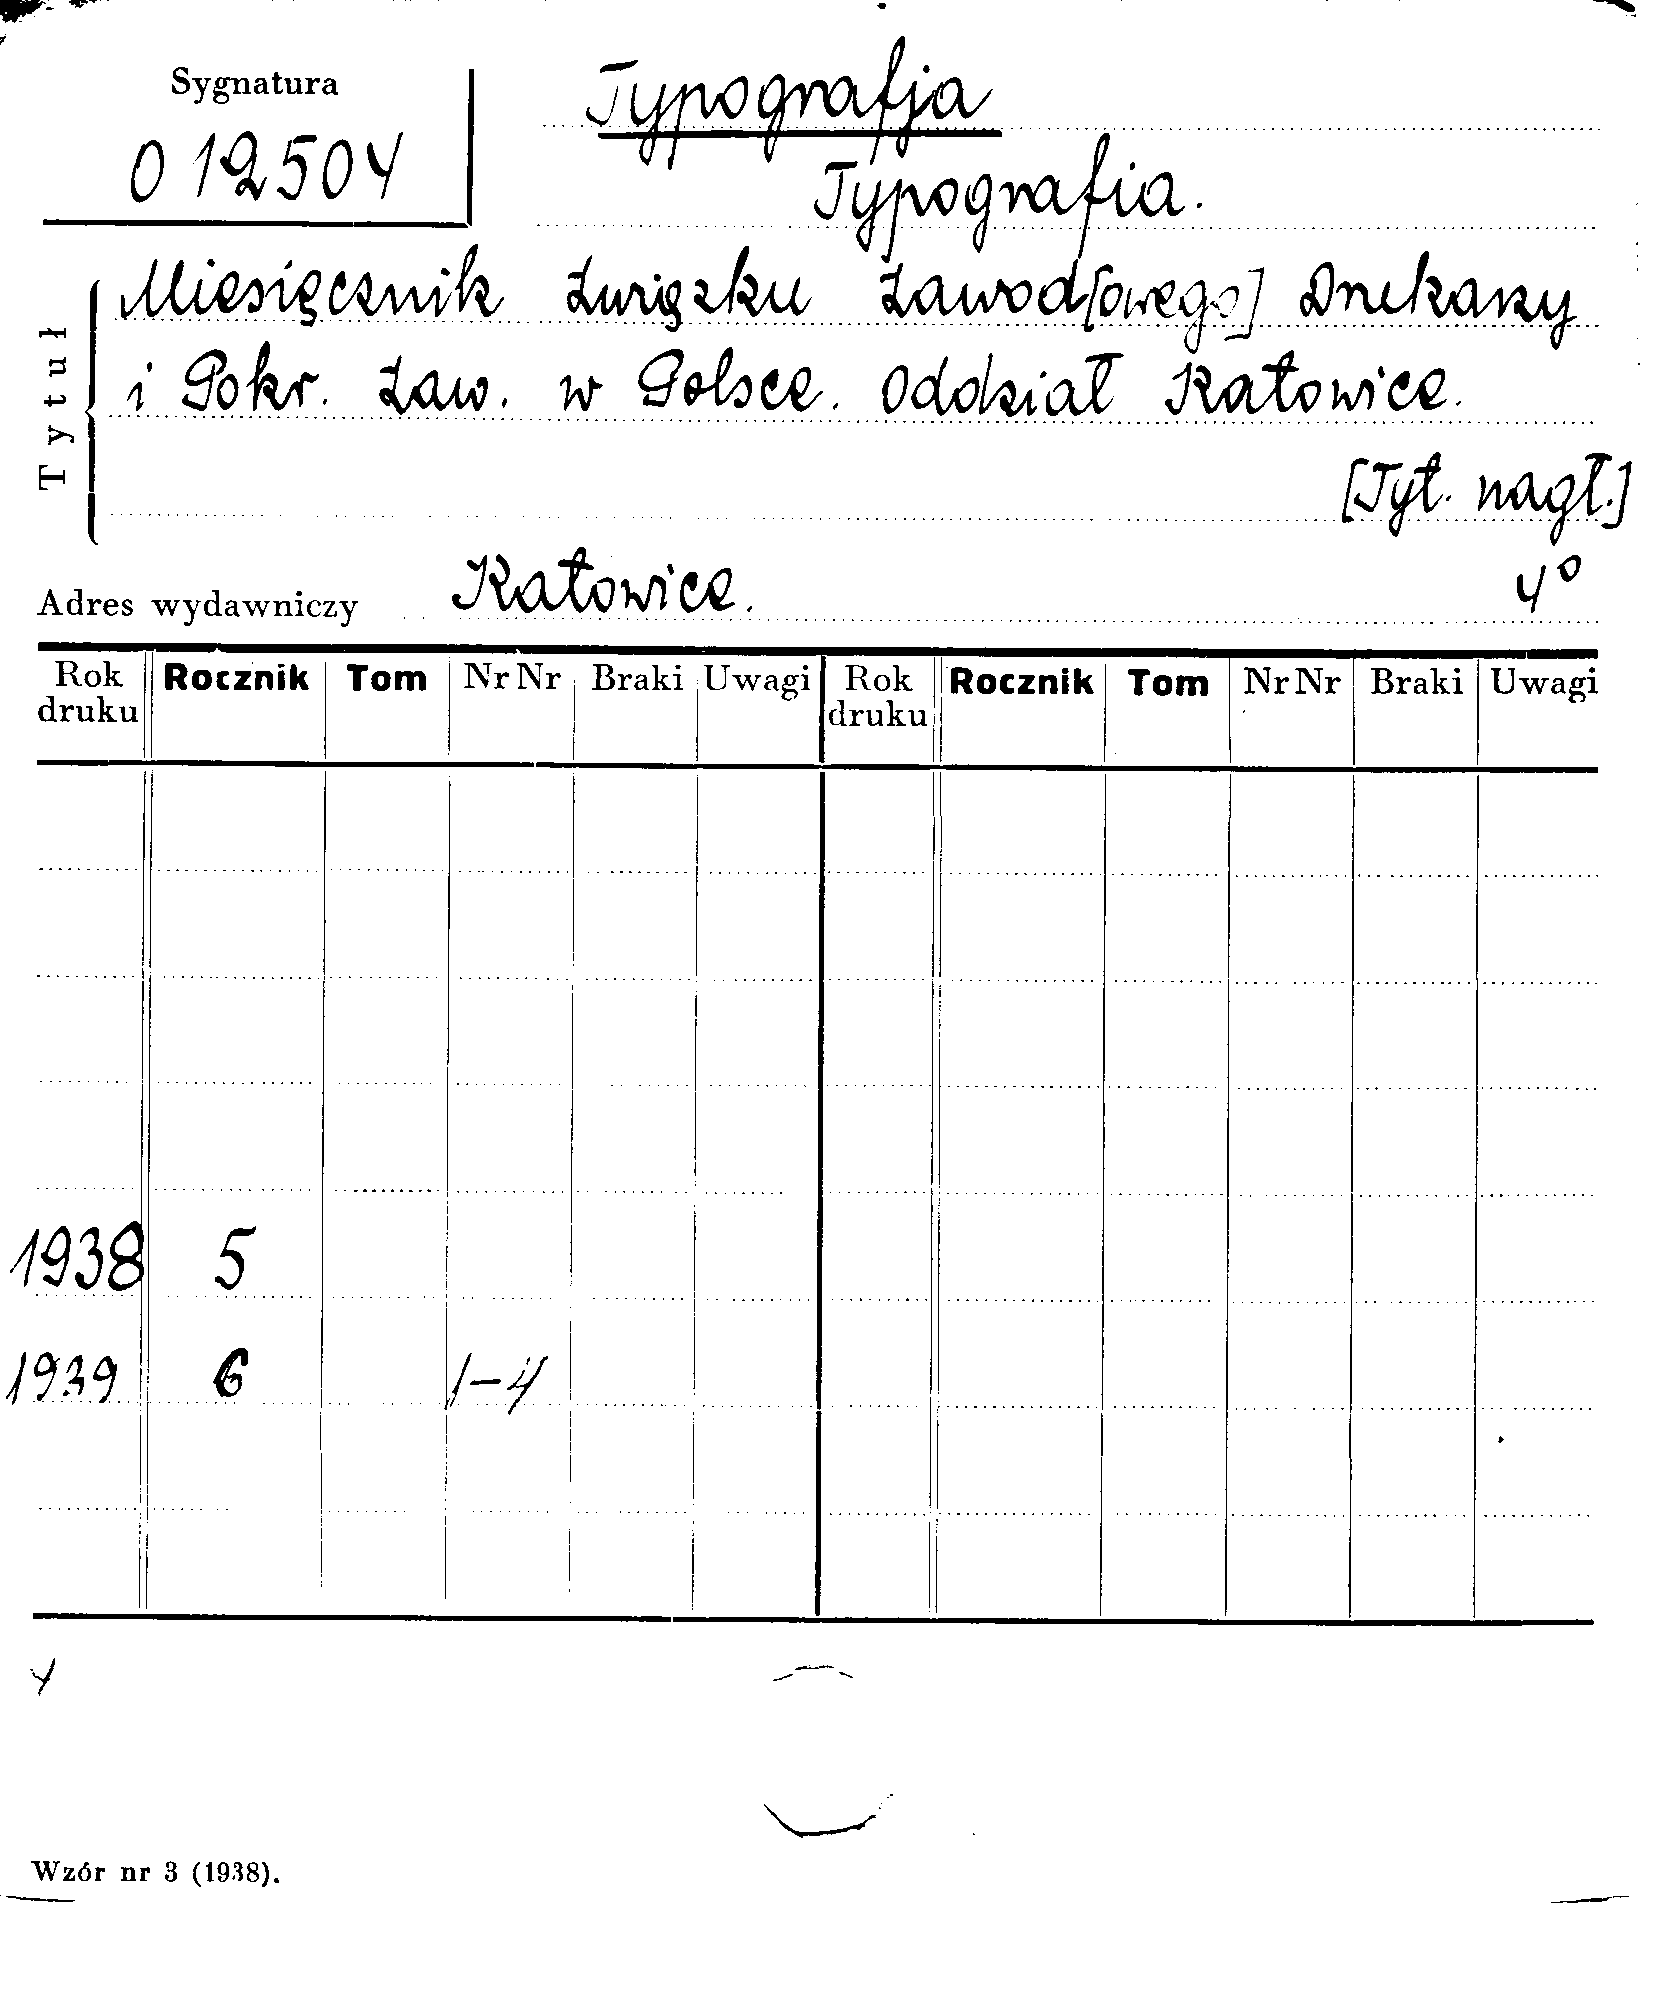 Sygnatura
0 12504
Typografja
Typografia.
Tytuł
Miesięcznik Związku Zawod[owego] Drukarzy
i Pokr. Zaw. w Polsce. Oddział Katowice.
[Tyt. nagł.]
Adres wydawniczy Katowice. 4°
Rok druku Rocznik Tom Nr Nr Braki Uwagi Rok druku Rocznik Tom Nr Nr Braki Uwagi
1938 5
1939 6 1-4
Wzór nr 3 (1938).